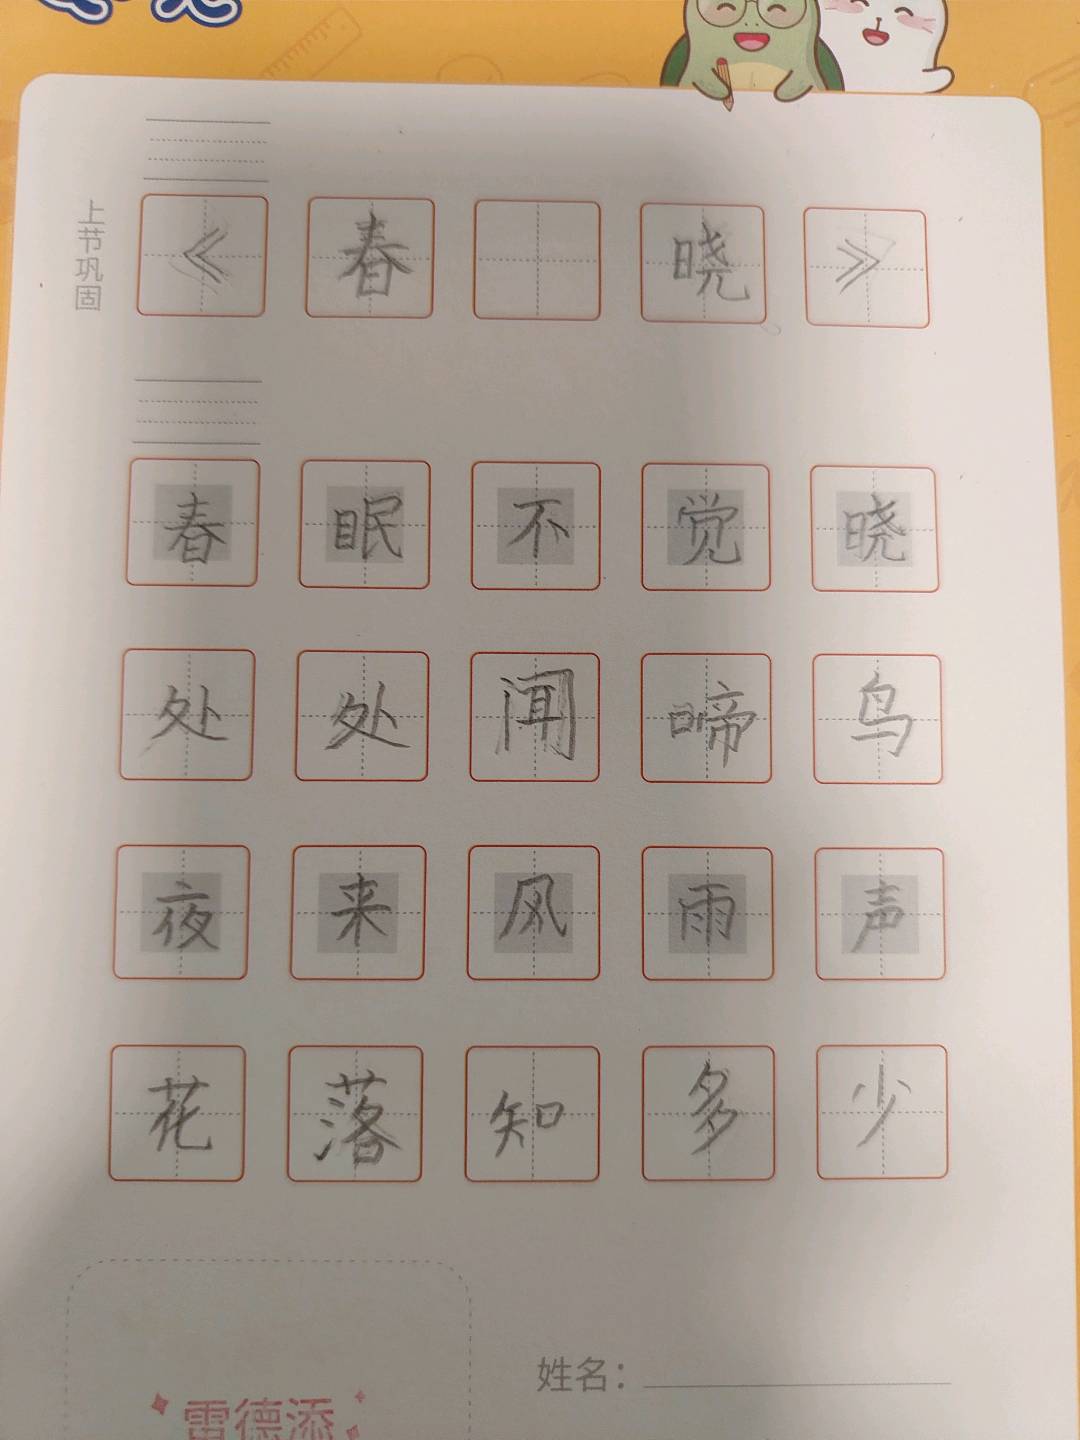 上节巩固
《春 晓》
春眠不觉晓
处处闻啼鸟
夜来风雨声
花落知多少
姓名：
雷德添